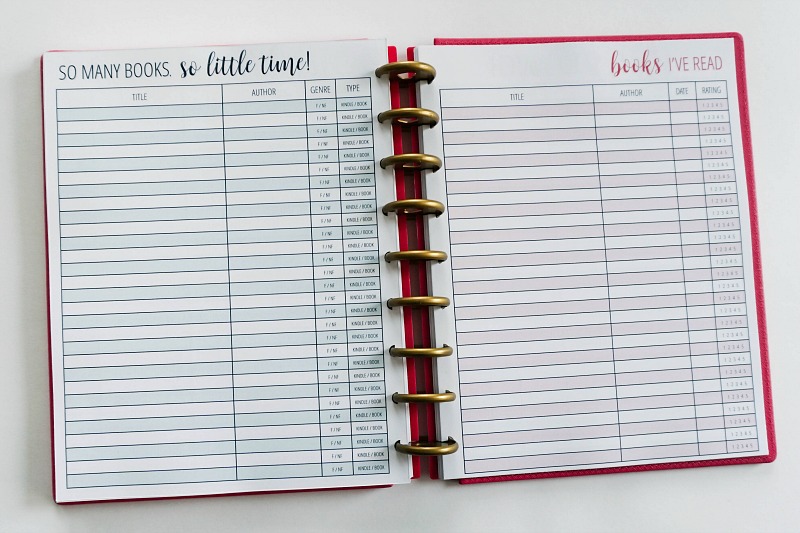 SO MANY BOOKS. so little time!
TITLE AUTHOR GENRE TYPE
F / NF KINDLE / BOOK
F / NF KINDLE / BOOK
F / NF KINDLE / BOOK
F / NF KINDLE / BOOK
F / NF KINDLE / BOOK
F / NF KINDLE / BOOK
F / NF KINDLE / BOOK
F / NF KINDLE / BOOK
F / NF KINDLE / BOOK
F / NF KINDLE / BOOK
F / NF KINDLE / BOOK
F / NF KINDLE / BOOK
F / NF KINDLE / BOOK
F / NF KINDLE / BOOK
F / NF KINDLE / BOOK
F / NF KINDLE / BOOK
F / NF KINDLE / BOOK
F / NF KINDLE / BOOK
F / NF KINDLE / BOOK
F / NF KINDLE / BOOK
F / NF KINDLE / BOOK
F / NF KINDLE / BOOK
F / NF KINDLE / BOOK
F / NF KINDLE / BOOK
F / NF KINDLE / BOOK
F / NF KINDLE / BOOK
F / NF KINDLE / BOOK
F / NF KINDLE / BOOK
F / NF KINDLE / BOOK
books I'VE READ
TITLE AUTHOR DATE RATING
1 2 3 4 5
1 2 3 4 5
1 2 3 4 5
1 2 3 4 5
1 2 3 4 5
1 2 3 4 5
1 2 3 4 5
1 2 3 4 5
1 2 3 4 5
1 2 3 4 5
1 2 3 4 5
1 2 3 4 5
1 2 3 4 5
1 2 3 4 5
1 2 3 4 5
1 2 3 4 5
1 2 3 4 5
1 2 3 4 5
1 2 3 4 5
1 2 3 4 5
1 2 3 4 5
1 2 3 4 5
1 2 3 4 5
1 2 3 4 5
1 2 3 4 5
1 2 3 4 5
1 2 3 4 5
1 2 3 4 5
1 2 3 4 5